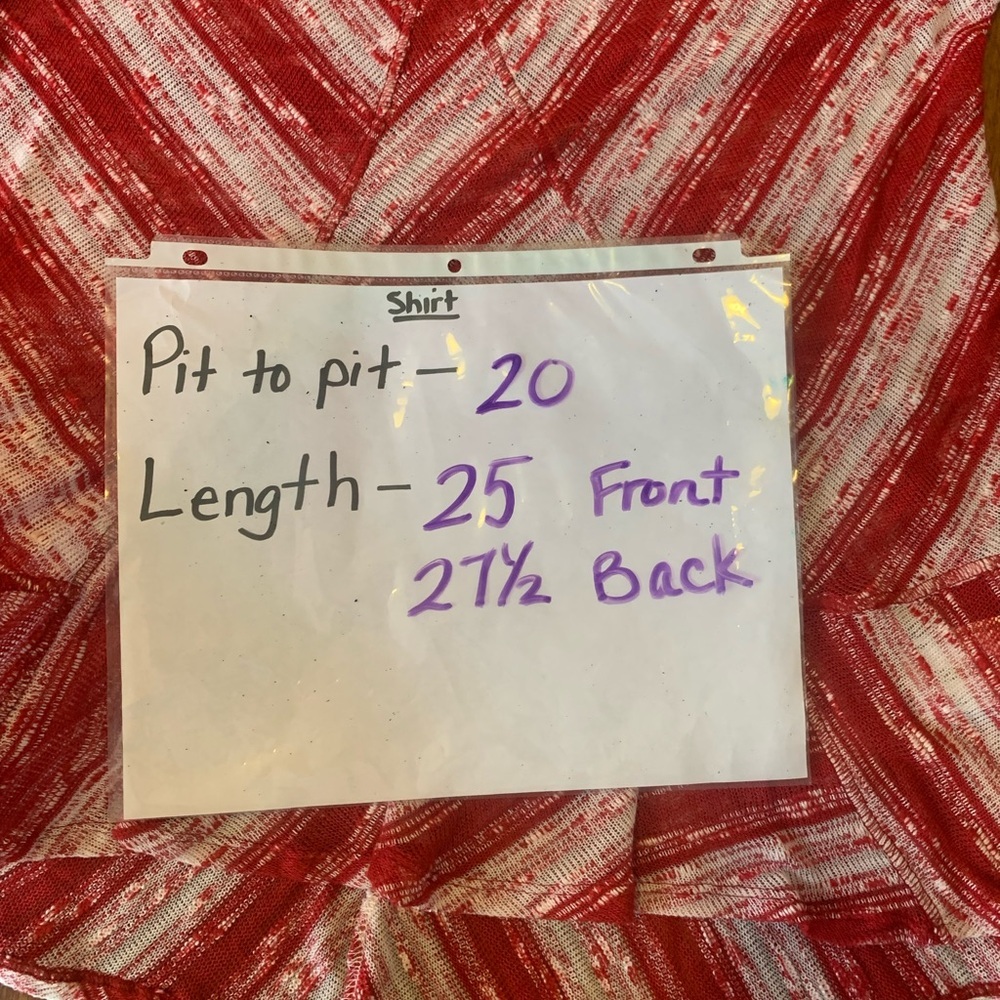 Shirt
Pit to pit - 20
Length - 25 Front
27½ Back